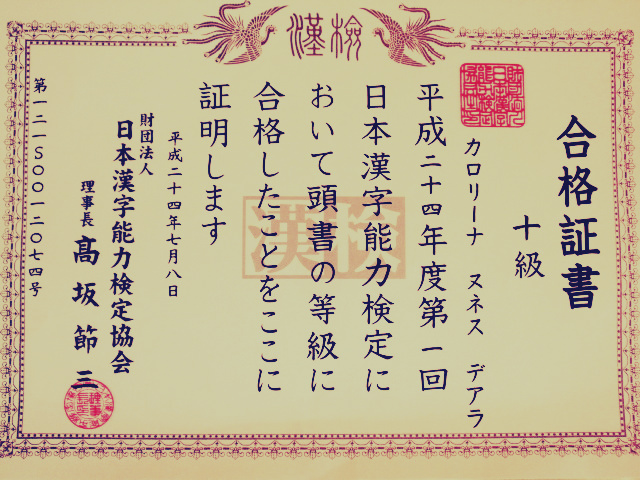 漢検
合格証書
十級
カロリーナ ヌネス デアラ
平成二十四年度第一回
日本漢字能力検定に
おいて頭書の等級に
合格したことをここに
証明します
平成二十四年七月八日
財団法人
日本漢字能力検定協会
理事長 髙坂節三
第一二一S〇〇一二〇七四号
漢検